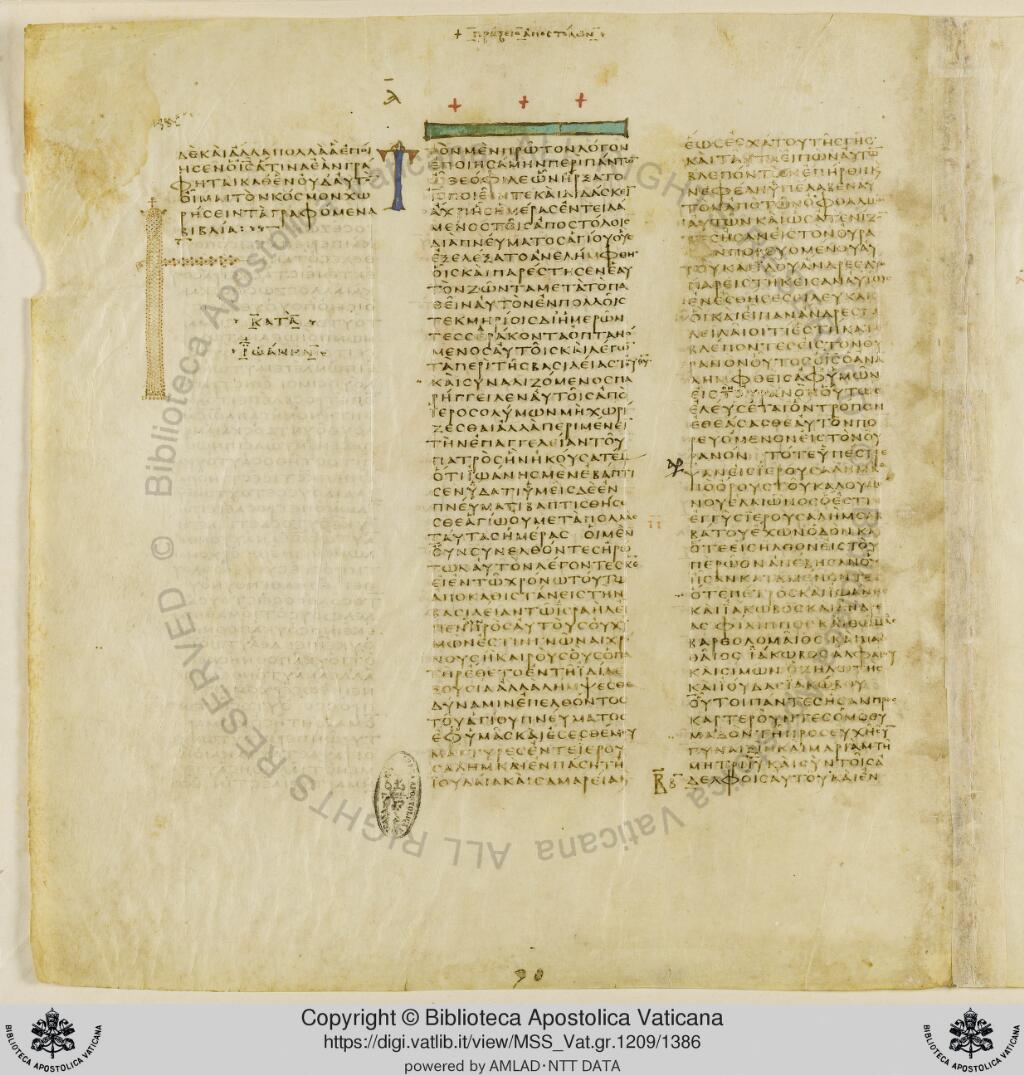 + ΠΡΑΞΕΙϹ ΑΠΟϹΤΟΛΩΝ
ΔΕΚΑΙΑΛΛΑΠΟΛΛΑΑΕΠΟΙ
ΗϹΕΝΟΙϹΑΤΙΝΑΕΑΝΓΡΑ
ΦΗΤΑΙΚΑΘΕΝΟΥΔΑΥΤΟ̅
ΟΙΜΑΙΤΟΝΚΟϹΜΟΝΧΩ
ΡΗϹΕΙΝΤΑΓΡΑΦΟΜΕΝΑ
ΒΙΒΛΙΑ
ΚΑΤΑ
ΙΩΑΝΗΝ
Α̅
ΤΟΝΜΕΝΠΡΩΤΟΝΛΟΓΟΝ
ΕΠΟΙΗϹΑΜΗΝΠΕΡΙΠΑΝΤΩ̅
ΩΘΕΟΦΙΛΕΩΝΗΡΞΑΤΟ
ΙϹΠΟΙΕΙΝΤΕΚΑΙΔΙΔΑϹΚΕΙ̅
ΑΧΡΙΗϹΗΜΕΡΑϹΕΝΤΕΙΛΑ
ΜΕΝΟϹΤΟΙϹΑΠΟϹΤΟΛΟΙϹ
ΔΙΑΠΝΕΥΜΑΤΟϹΑΓΙΟΥΟΥϹ
ΕΞΕΛΕΞΑΤΟΑΝΕΛΗΜΦΘΗ
ΟΙϹΚΑΙΠΑΡΕϹΤΗϹΕΝΕΑΥ
ΤΟΝΖΩΝΤΑΜΕΤΑΤΟΠΑ
ΘΕΙΝΑΥΤΟΝΕΝΠΟΛΛΟΙϹ
ΤΕΚΜΗΡΙΟΙϹΔΙΗΜΕΡΩΝ
ΤΕϹϹΕΡΑΚΟΝΤΑΟΠΤΑΝΟ
ΜΕΝΟϹΑΥΤΟΙϹΚΑΙΛΕΓΩ̅
ΤΑΠΕΡΙΤΗϹΒΑϹΙΛΕΙΑϹΤΟΥΘΥ
ΚΑΙϹΥΝΑΛΙΖΟΜΕΝΟϹΠΑ
ΡΗΓΓΕΙΛΕΝΑΥΤΟΙϹΑΠΟ
ΙΕΡΟϹΟΛΥΜΩΝΜΗΧΩΡΙ
ΖΕϹΘΑΙΑΛΛΑΠΕΡΙΜΕΝΕΙ̅
ΤΗΝΕΠΑΓΓΕΛΕΙΑΝΤΟΥ
ΠΑΤΡΟϹΗΝΗΚΟΥϹΑΤΕΜΟΥ
ΟΤΙΙΩΑΝΗϹΜΕΝΕΒΑΠΤΙ
ϹΕΝΥΔΑΤΙΥΜΕΙϹΔΕΕΝ
ΠΝΕΥΜΑΤΙΒΑΠΤΙϹΘΗϹΕ
ϹΘΕΑΓΙΩΟΥΜΕΤΑΠΟΛΛΑϹ
ΤΑΥΤΑϹΗΜΕΡΑϹ ΟΙΜΕΝ
ΟΥΝϹΥΝΕΛΘΟΝΤΕϹΗΡΩ
ΤΩΝΑΥΤΟΝΛΕΓΟΝΤΕϹΚΕ
ΕΙΕΝΤΩΧΡΟΝΩΤΟΥΤΩ
ΑΠΟΚΑΘΙϹΤΑΝΕΙϹΤΗΝ
ΒΑϹΙΛΕΙΑΝΤΩΙϹΡΑΗΛΕΙ
ΠΕΝΠΡΟϹΑΥΤΟΥϹΟΥΧΥ
ΜΩΝΕϹΤΙΝΓΝΩΝΑΙΧΡΟ
ΝΟΥϹΗΚΑΙΡΟΥϹΟΥϹΟΠΑ
ΤΗΡΕΘΕΤΟΕΝΤΗΙΔΙΑΕ
ΞΟΥϹΙΑΑΛΛΑΛΗΜΨΕϹΘΕ
ΔΥΝΑΜΙΝΕΠΕΛΘΟΝΤΟϹ
ΤΟΥΑΓΙΟΥΠΝΕΥΜΑΤΟϹ
ΕΦΥΜΑϹΚΑΙΕϹΕϹΘΕΜΟΥ
ΜΑΡΤΥΡΕϹΕΝΤΕΙΕΡΟΥ
ϹΑΛΗΜΚΑΙΕΝΠΑϹΗΤΗ
ΙΟΥΔΑΙΑΚΑΙϹΑΜΑΡΕΙΑΚΑΙ
ΕΩϹΕϹΧΑΤΟΥΤΗϹΓΗϹ
ΚΑΙΤΑΥΤΑΕΙΠΩΝΑΥΤΩ̅
ΒΛΕΠΟΝΤΩΝΕΠΗΡΘΗΚΑΙ
ΝΕΦΕΛΗΥΠΕΛΑΒΕΝΑΥ
ΤΟΝΑΠΟΤΩΝΟΦΘΑΛΜΩ̅
ΑΥΤΩΝΚΑΙΩϹΑΤΕΝΙΖΟ̅
ΤΕϹΗϹΑΝΕΙϹΤΟΝΟΥΡΑ
ΝΟΝΠΟΡΕΥΟΜΕΝΟΥΑΥ
ΤΟΥΚΑΙΙΔΟΥΑΝΔΡΕϹΔΥΟ
ΠΑΡΕΙϹΤΗΚΕΙϹΑΝΑΥΤΟΙϹ
ΕΝΕϹΘΗϹΕϹΙΛΕΥΚΑΙϹ
ΟΙΚΑΙΕΙΠΑΝΑΝΔΡΕϹΓΑ
ΛΕΙΛΑΙΟΙΤΙΕϹΤΗΚΑΤΕ
ΒΛΕΠΟΝΤΕϹΕΙϹΤΟΝΟΥ
ΡΑΝΟΝΟΥΤΟϹΟΙϹΟΑΝΑ
ΛΗΜΦΘΕΙϹΑΦΥΜΩΝ
ΕΙϹΤΟΝΟΥΡΑΝΟΝΟΥΤΩϹ
ΕΛΕΥϹΕΤΑΙΟΝΤΡΟΠΟΝ
ΕΘΕΑϹΑϹΘΕΑΥΤΟΝΠΟ
ΡΕΥΟΜΕΝΟΝΕΙϹΤΟΝΟΥ
ΡΑΝΟΝ ΤΟΤΕΥΠΕϹΤΡΕ
ΨΑΝΕΙϹΙΕΡΟΥϹΑΛΗΜΑ
ΠΟΟΡΟΥϹΤΟΥΚΑΛΟΥΜΕ
ΝΟΥΕΛΑΙΩΝΟϹΟΕϹΤΙ
ΕΓΓΥϹΙΕΡΟΥϹΑΛΗΜϹΑΒ
ΒΑΤΟΥΕΧΟΝΟΔΟΝΚΑΙ
ΟΤΕΕΙϹΗΛΘΟΝΕΙϹΤΟΥ
ΠΕΡΩΟΝΑΝΕΒΗϹΑΝΟΥ
ΗϹΑΝΚΑΤΑΜΕΝΟΝΤΕϹ
ΟΤΕΠΕΤΡΟϹΚΑΙΙΩΑΝΗϹ
ΚΑΙΙΑΚΩΒΟϹΚΑΙΑΝΔΡΕ
ΑϹΦΙΛΙΠΠΟϹΚΑΙΘΩΜΑϹ
ΒΑΡΘΟΛΟΜΑΙΟϹΚΑΙΜΑΘ
ΘΑΙΟϹΙΑΚΩΒΟϹΑΛΦΑΙΟΥ
ΚΑΙϹΙΜΩΝΟΖΗΛΩΤΗϹ
ΚΑΙΙΟΥΔΑϹΙΑΚΩΒΟΥ
ΟΥΤΟΙΠΑΝΤΕϹΗϹΑΝΠΡΟϹ
ΚΑΡΤΕΡΟΥΝΤΕϹΟΜΟΘΥ
ΜΑΔΟΝΤΗΠΡΟϹΕΥΧΗϹΥ̅
ΓΥΝΑΙΞΙΝΚΑΙΜΑΡΙΑΜΤΗ
ΜΗΤΡΙΙΥΚΑΙϹΥΝΤΟΙϹΑ
ΔΕΛΦΟΙϹΑΥΤΟΥΚΑΙΕΝ
Copyright © Biblioteca Apostolica Vaticana
https://digi.vatlib.it/view/MSS_Vat.gr.1209/1386
powered by AMLAD·NTT DATA